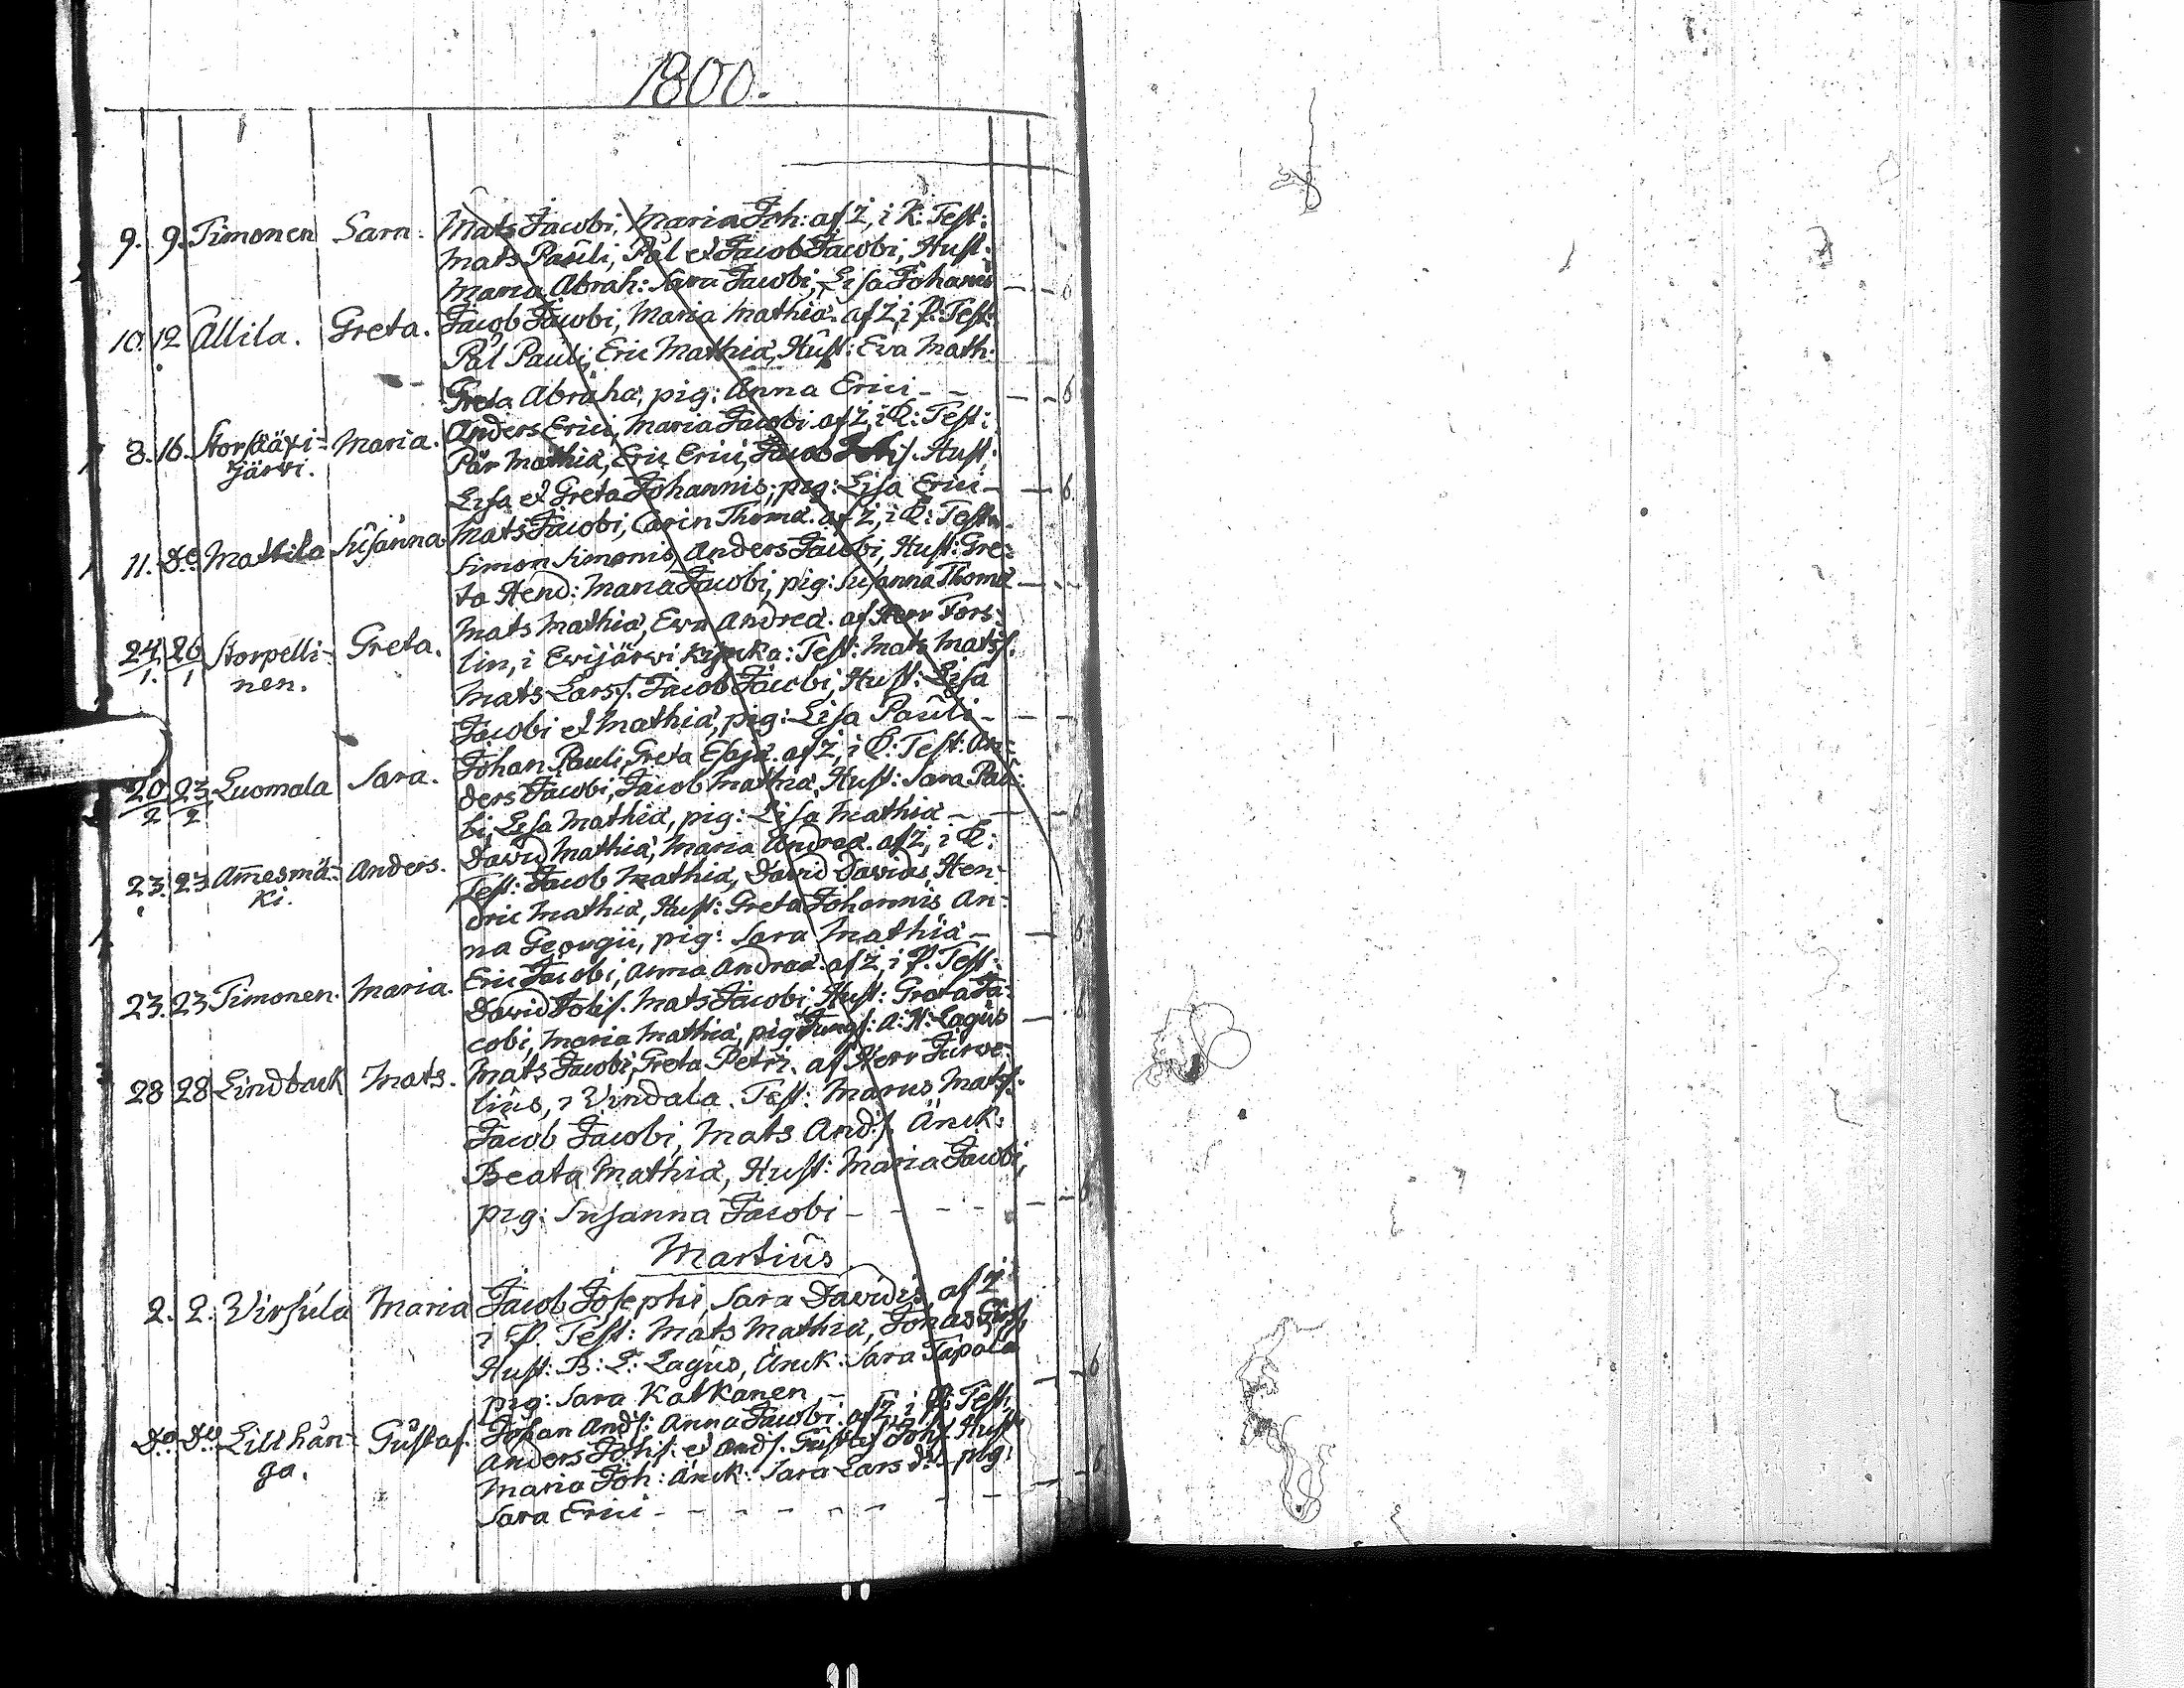 1800.
9. 9. Timonen Sara. Mats Jacobi, Maria Joh: af Z, i K: Test:
Mats Pauli, Pål et Jacob Jacobi, Hust:
Maria Abrah: Sara Jacobi, Lisa Johanis - - 6
10. 12 Allila. Greta. Jacob Jacobi, Maria Mathiæ. af Z, i P: Test:
Pål Pauli, Eric Mathiæ, Hust: Eva Math:
Greta Abrahæ, pig: Anna Erici - - - - 6
8. 16. Storkääri- Maria. Anders Erici, Maria Jacobi. af Z, i P: Test:
järvi. Pär Mathiæ, Eric Erici, Jacob Hust:
Lisa et Greta Johannis, pig: Lisa Erici - - 6
11. Do Mattila Susanna Mats Jacobi, Carin Thomæ. af Z, i P: Test:
Simon Simonis, Anders Jacobi, Hust: Gre-
ta Hend: Maria Jacobi, pig: Susanna Thomæ - -
24/1. 26/1 Storpelli- Greta. Mats Mathiæ, Ewa Andreæ. af Herr Fors-
nen. lin, i Ewijärwi Kyrcka: Test: Mats Matss.
Mats Larss. Jacob Jacobi, Hust: Lisa
Jacobi et Mathiæ, pig: Lisa Pauli - - -
20/2 23/2 Luomala Sara. Johan Pauli, Greta Esajæ. af Z, i P: Test: An-
ders Jacobi, Jacob Mathiæ, Hust: Sara
Lisa Mathiæ, pig: Lisa Mathiæ - - - 6
23. 23 Am̄esmä- Anders. David Mathiæ, Maria Andreæ. af Z, i P:
ki. Test: Jacob Mathiæ, David Davidis, Hen-
dric Mathiæ, Hust: Greta Johannis An-
na Georgii, pig: Sara Mathiæ - - 6
23. 23 Timonen. Maria. Eric Jacobi, Anna Andreæ. af Z, i P. Test:
David Johs. Mats Jacobi, Hust: Greta Ja-
cobi, Maria Mathiæ, pig: A: H: Lagus - 6
28 28 Lindback Mats. Mats Jacobi, Greta Petri. af Herr Jurve-
lius, i Vindala. Test: Marus Matss.
Jacob Jacobi, Mats Ands. Änck:
Beata Mathiæ, Hust: Maria Jacobi,
pig: Susanna Jacobi - - - - - -
Martius
2. 2. Virsula Maria Jacob Josephi, Sara Davidis, af Z
i P. Test: Mats Mathiæ, Jonas
Hust: B: L: Lagus, Änck: Sara Tapola
pig: Sara Katkanen - - - 6
Do Do Lillhan- Gustaf. Johan Ands: Anna Jacobi. af Z, i P: Test,
ga. Anders Johs. et Ands. Gustaf Johs. Hust
Maria Joh: Änck: Sara Lars dr. pig: - 6
Sara Erici - - - - - - - -